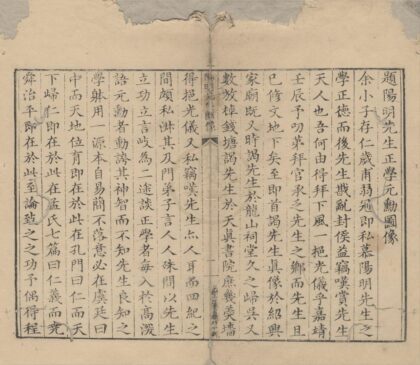 題陽明先生正學元勳圖像
余小子存仁歲甫弱冠即私慕陽明先生之
學正德而後先生戡亂封侯益竊嘆賞先生
天人也吾何由得拜下風一挹光儀乎嘉靖
壬辰予叨第拜官隶之先生之鄉而先生且
已修文地下矣至即首謁先生真像於紹興
家廟既又時謁先生於龍山祠堂久之歸吳又
數放棹錢塘謁先生於天真書院庶幾羹墻
得挹光儀又私竊嘆先生亦人耳而四紀之
間頗私淑其及門弟子言人人殊間以先生
立功立言岐為二途談正學者每入於高深
語元勳者動談其神智而不知先生良知之
學躰用一源本自易簡不落意必在虞廷曰
中而天地位育即在於此在孔門曰仁而天
下歸仁即在於此在孟氏七篇曰仁義而堯
舜治平即在於此至論造之之功予偶得程